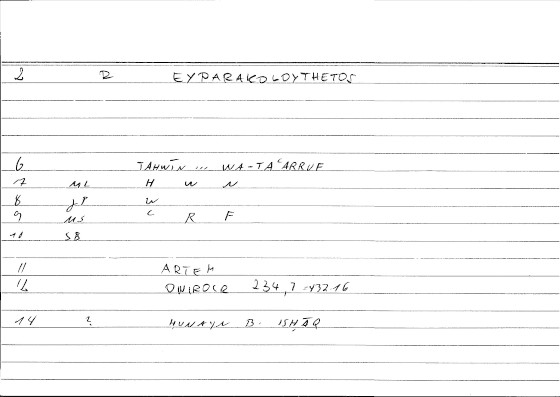 2 R EYPARAKOLOYTHETOS
6 TAHWĪN ... WA-TAʿARRUF
7 ML H W N
8 JT W
9 MS ʿ R F
10 SB
11 ARTEM
12 ONIROCR 234,7 -432 16
14 ? ḤUNAYN B. ISḤĀQ